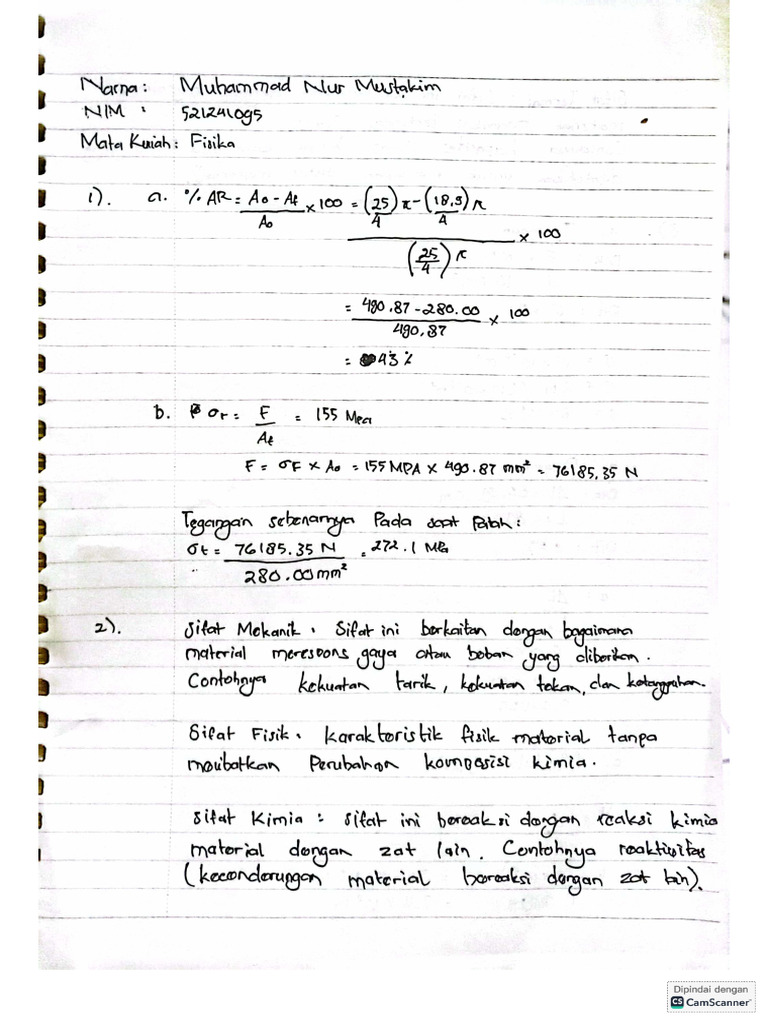 Nama : Muhammad Nur Mustakim
NIM : 521241095
Mata Kuliah : Fisika
1). a. % AR = A₀ - Af / A₀ × 100 = (25/4) π - (18,5/4) π / (25/4) π × 100
= 490.87 - 280.00 / 490.87 × 100
= 43 %
b. σr = F / Af = 155 Mpa
F = σF × A₀ = 155 MPA × 490.87 mm² = 76185,35 N
Tegangan sebenarnya Pada saat Patah :
σt = 76185.35 N / 280.00 mm² = 272.1 MPa
2). Sifat Mekanik . Sifat ini berkaitan dengan bagaimana
material merespons gaya atau beban yang diberikan.
Contohnya kekuatan tarik, kekuatan tekan, dan ketangguhan.
Sifat Fisik . Karakteristik fisik material tanpa
melibatkan Perubahan komposisi kimia.
Sifat Kimia : Sifat ini bereaksi dengan reaksi kimia
material dengan zat lain. Contohnya reaktivitas
(kecenderungan material bereaksi dengan zat lain).
Dipindai dengan
CS CamScanner